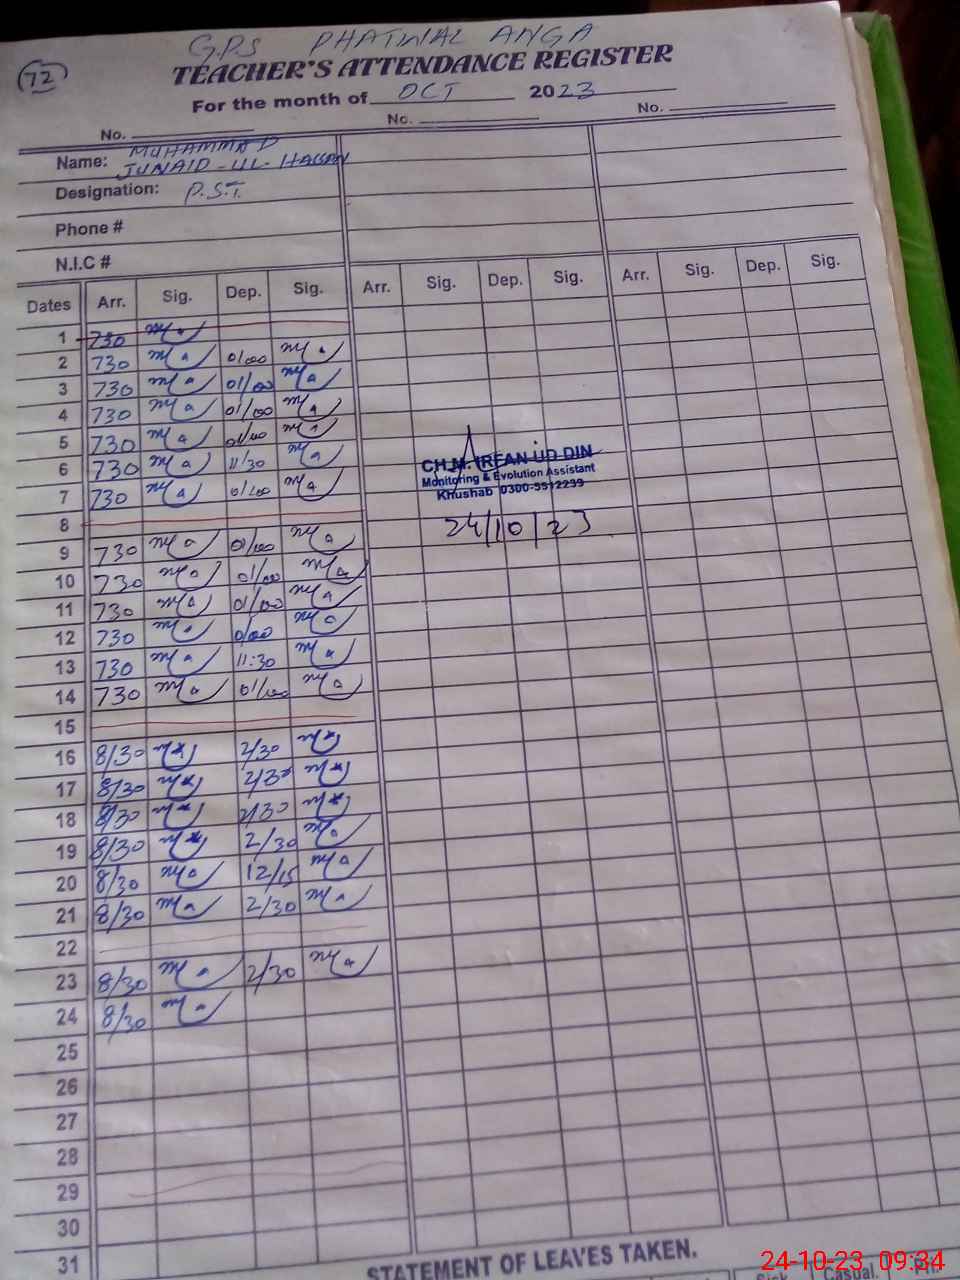 G.P.S PHATWAL ANGA
72
TEACHER'S ATTENDANCE REGISTER
For the month of OCT 2023
No. No. No.
Name: MUHAMMAD
JUNAID-UL-HASSAN
Designation: P.S.T.
Phone #
N.I.C #
Dates Arr. Sig. Dep. Sig. Arr. Sig. Dep. Sig. Arr. Sig. Dep. Sig.
1 730
2 730 01/00
3 730 01/00
4 730 01/00
5 730 01/00
6 730 11/30
7 730 01/00
8
9 730 01/00
10 730 01/00
11 730 01/00
12 730 01/00
13 730 11:30
14 730 01/00
15
16 8/30 2/30
17 8/30 2/30
18 8/30 2/30
19 8/30 2/30
20 8/30 12/15
21 8/30 2/30
22
23 8/30 2/30
24 8/30
25
26
27
28
29
30
31
CH.M. IRFAN UD DIN
Monitoring & Evolution Assistant
Khushab 0300-5512299
24/10/23
STATEMENT OF LEAVES TAKEN.
Casual
24-10-23 09:34